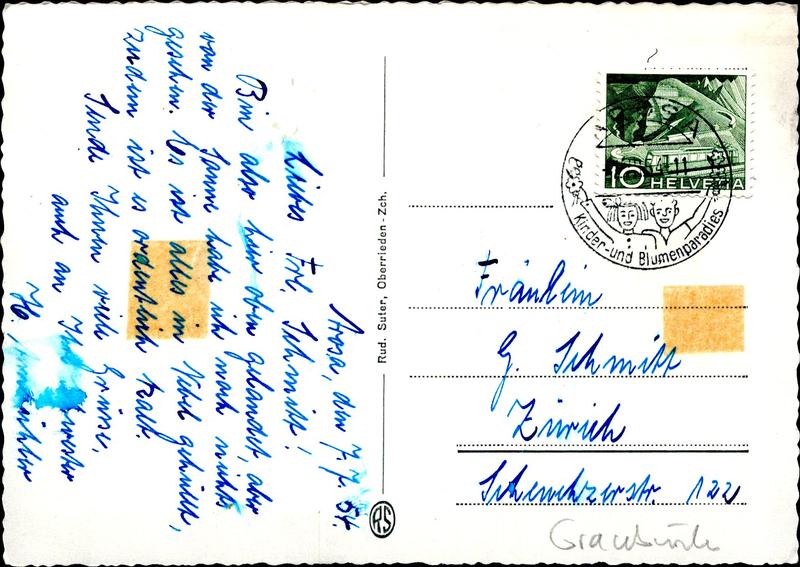 Arosa, den 7. 7. 54.
Liebes Frl. Schmitt!
Bin also hier oben gelandet, aber
von der Sonne hab ich noch nichts
gesehen. Es ist alles in Nebel gehüllt,
zudem ist es ordentlich kalt.
Sende Ihnen viele Grüsse,
auch an Ihre
H.
Rud. Suter, Oberrieden - Zch.
RS
AROSA
11
10 HELVETIA
Kinder- und Blumenparadies
Fräulein
G. Schmitt
Zürich
Scheuchzerstr. 122
Graubünden